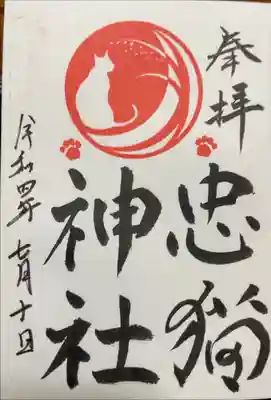 奉拝
忠猫
神社
令和四年七月十日